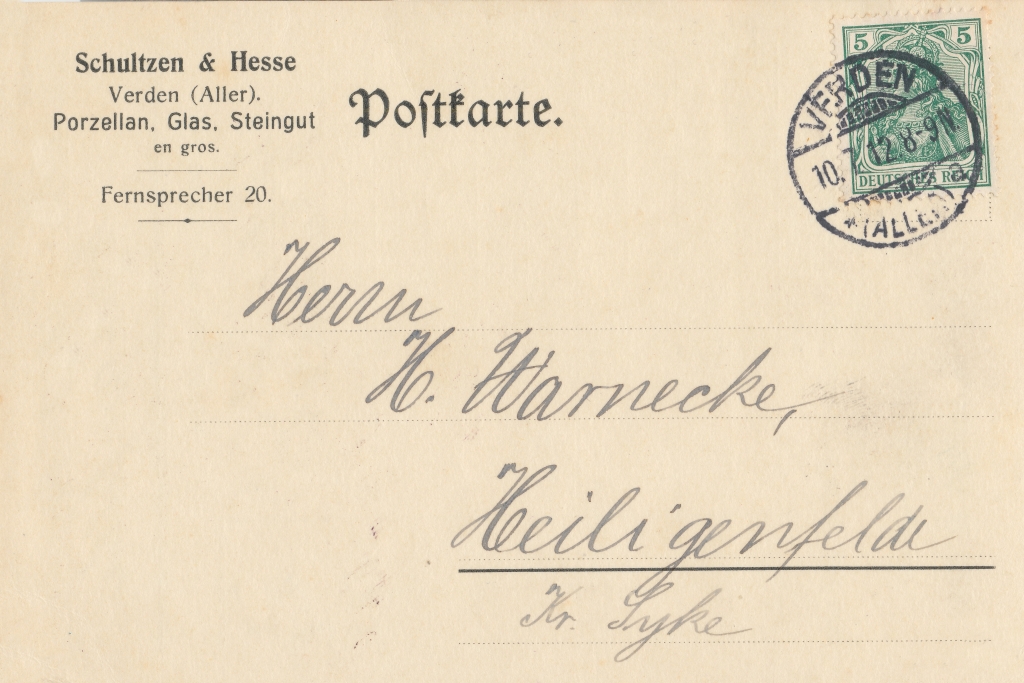 Schultzen & Hesse
Verden (Aller).
Porzellan, Glas, Steingut
en gros.
Fernsprecher 20.
Poſtkarte.
5 5
DEUTSCHES REICH
VERDEN
10.7.12.8-9N
*(ALLER)
Herrn
H. Warnecke,
Heiligenfelde
Kr. Syke